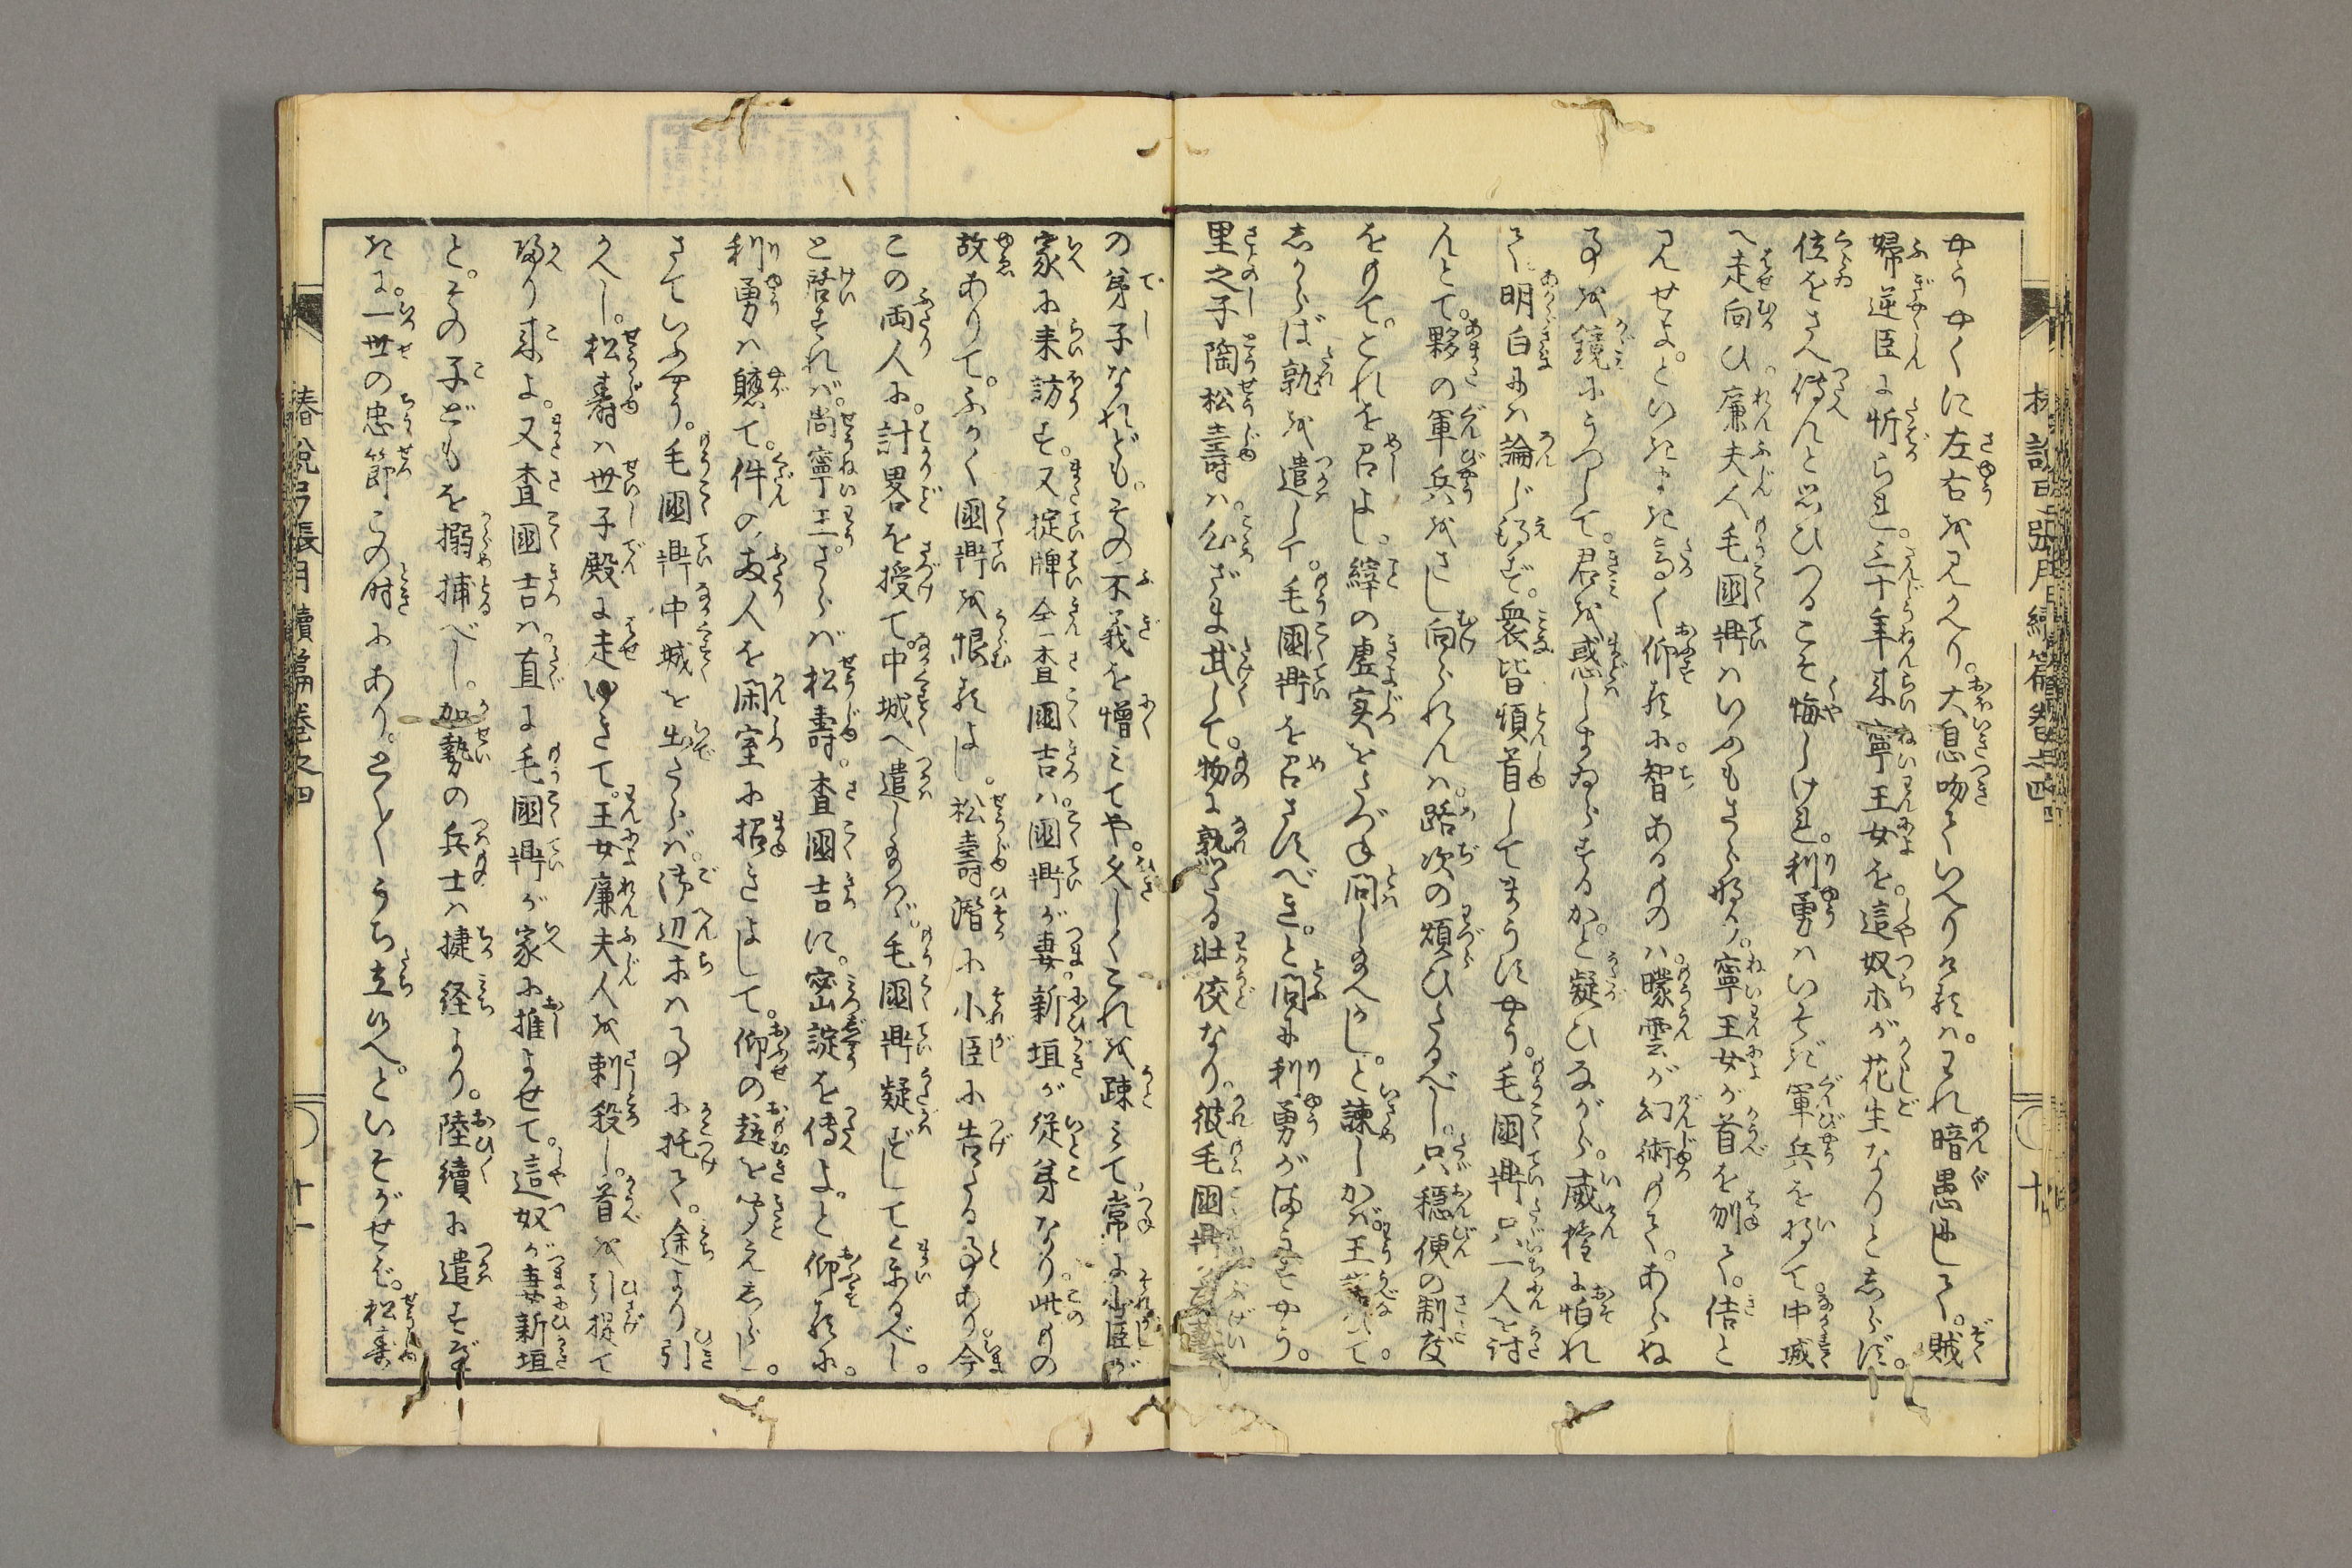 やうやくに左右を見かへり。大息吻ていへりけるは。われ暗愚にして。賊
婦逆臣に忻られ。三十年来寧王女を。這奴ホが花生なりとしらず。
位をさへ傳んと思ひつるこそ悔しけれ。利勇はいそぎ軍兵を将て。中城
へ走向ひ。廉夫人毛國鼎はいふもさら也。寧王女が首を刎て。佶と
見せよ。といきまき高く仰るに。智あるものは曚雲が幻術もて。あらぬ
事を鏡にうつして。君を惑しまゐらするか。と疑ひながら。威権に怕れ
て明白には論じ得ず。衆皆頓首してまうすやう。毛國鼎只一人を討
んとて。夥の軍兵をさし向られんは。路次の煩ひたるべし。只穏便の制度
をもて。これを召よし。縡の虚実をたづね問し給へかし。と諫しかば。王
しからば孰を遣して。毛國鼎を召さすべき。と問に利勇がまうすやう。
里之子陶松壽は。心ざま武くして。物に熟たる壮佼なり。彼毛國鼎
の弟子なれども。その不義を憎みてや。久しくこれを疎みて。常に小臣が
家に来訪す。又掟牌金査國吉は。國鼎が妻。新垣が従弟なり。此もの
故ありて。ふかく國鼎を恨るよし。松壽潛に小臣に告たる事あり。今
この両人に。計畧を授て。中城へ遣し給はゞ。毛國鼎疑ずして来るべし。
と啓すれば。尚寧王。さらば松壽。査國吉に。密諚を傳よ。と仰るに。
利勇は軈て。件の両人を閑室に招きよして。仰の趣を聞えしらし。
さていふやう。毛國鼎中城を出たらば。御辺ホは事に托て。途より引
かへし。松壽は世子殿に走ゆきて。王女廉夫人を刺殺し。首を引提て
帰り来よ。又査國吉は。直に毛國鼎が家に推よせて。這奴が妻新垣
と。その子どもを搦捕べし。加勢の兵士は捷径より。陸續に遣すべ
きに。一世の忠節この時にあり。とくとくうち立給へ。といそがせば。松壽
椿説弓張月續篇巻之四
十一
椿説弓張月續篇巻之四
十